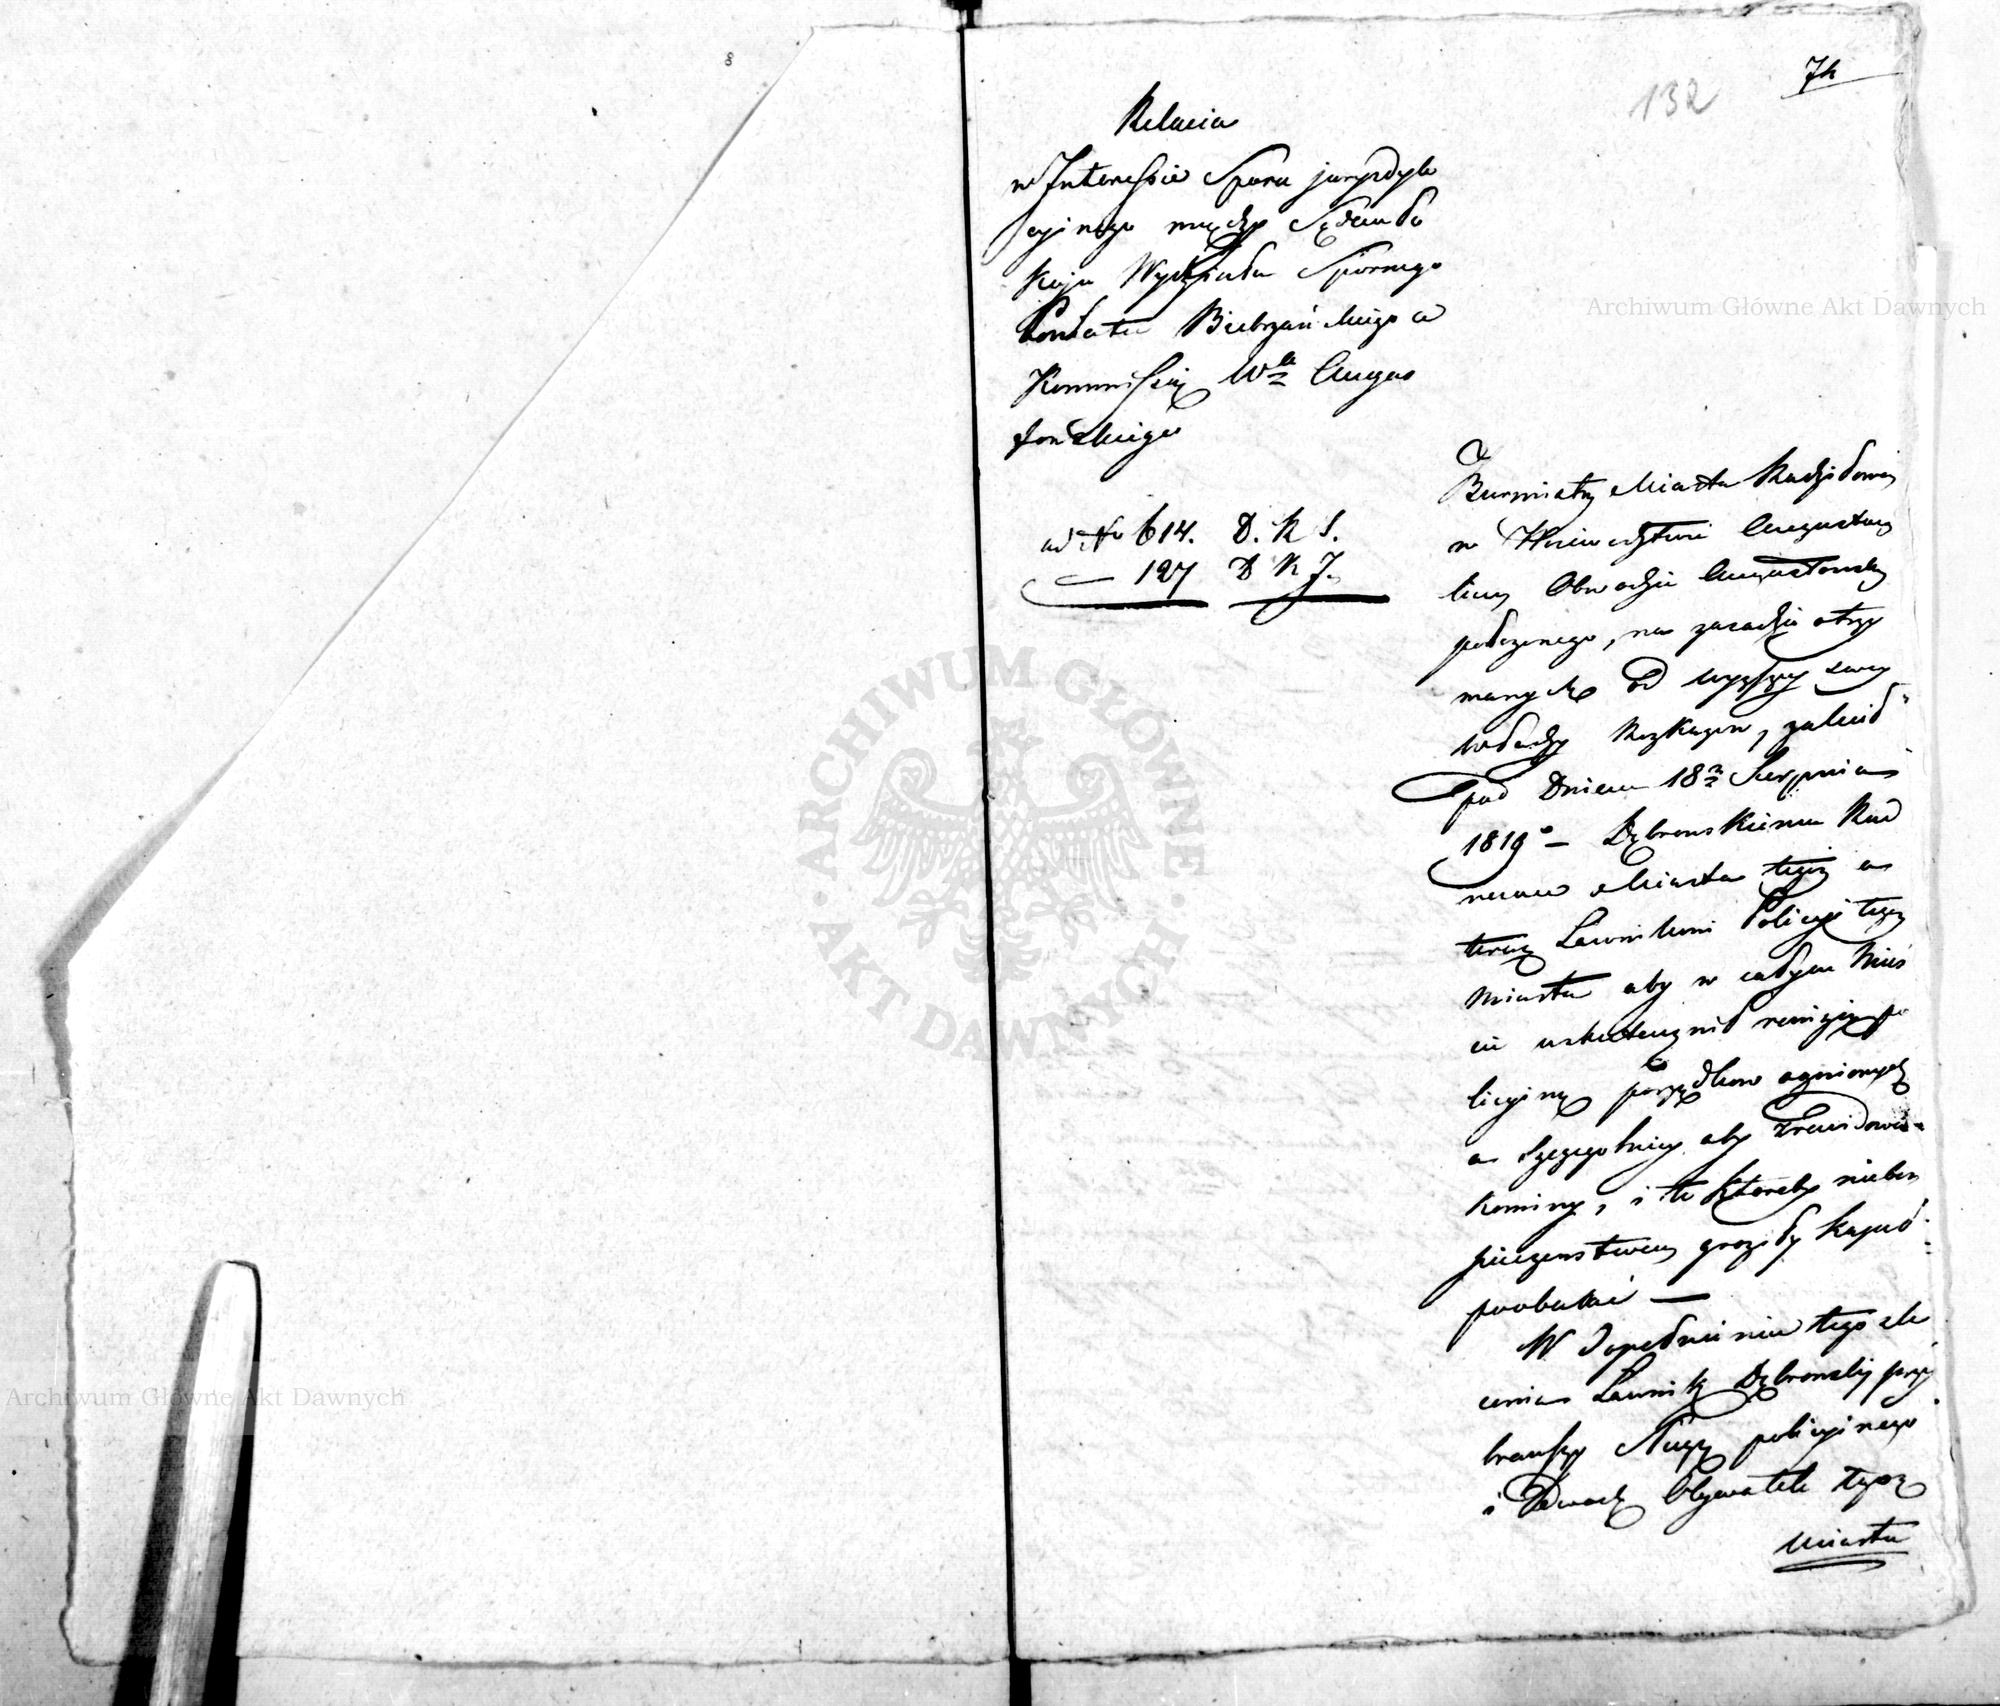 132
74
Relacia
w Interessie Sporu juryzdyk
cyinego między Sądem Po
koju Wydziału Spornego
Powiatu Biebrzańskiego a
Kommissią Wa Augus
towskiego
ad No 614. D. K S.
— 127 D K J.
Burmistrz Miasta Radziłowa
w Woiewództwie Augustow
skim Obwodzie Augustowskim
położonego, na zasadzie otrzy
manych od wyższey swey
władzy Rozkazow, zalecił
pod Dniem 18 Sierpnia
1819 — Dąbrowskiemu Rad
nemu Miasta tegoż a
teraz Ławnikowi Policyi tegoż
Miasta aby w całym Mieś
cie uskutecznił rewizyą po
licyiną porządkow ogniowych
a szczegolniey aby zrewidował
kominy, i te ktoreby niebes
pieczenstwem groziły kazał
poobalać —
W dopełnieniu tego zle
cenia Ławnik Dąbrowski przy
brawszy Stróża policyinego
i Dwóch Obywateli tegoż
Miasta
ARCHIWUM GŁÓWNE · AKT DAWNYCH ·
Archiwum Główne Akt Dawnych
Archiwum Główne Akt Dawnych